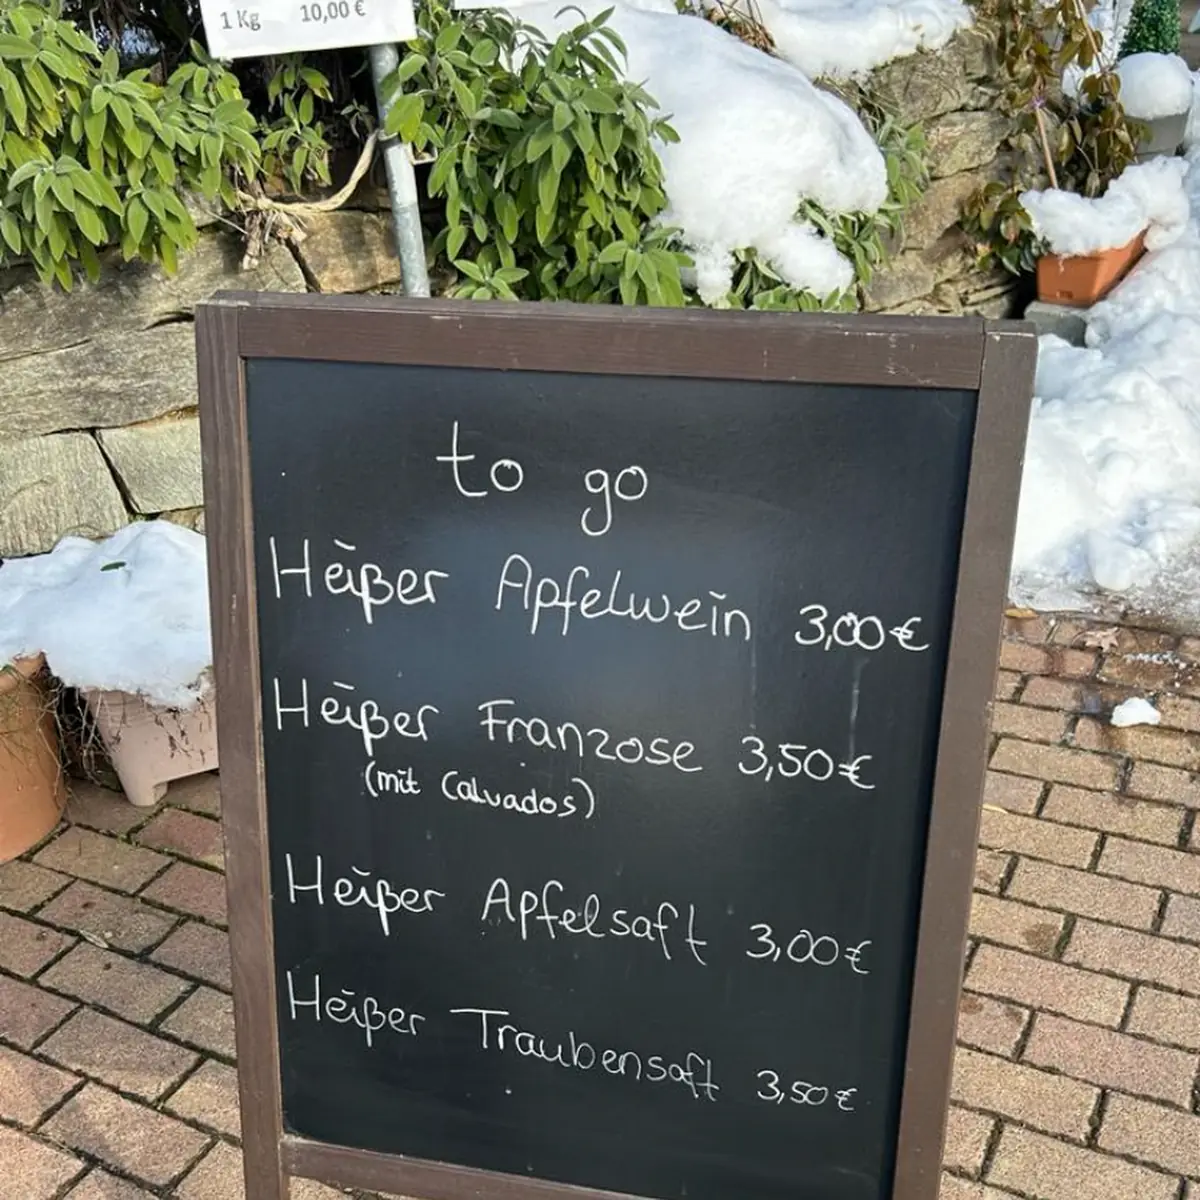 1 Kg 10,00 €
to go
Heißer Apfelwein 3,00€
Heißer Franzose 3,50€
(mit Calvados)
Heißer Apfelsaft 3,00€
Heißer Traubensaft 3,50€